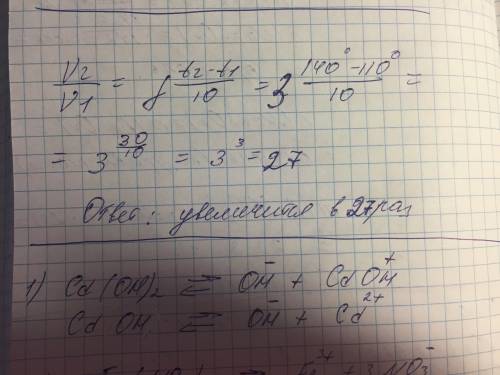 V₂/V₁ = γ^((t₂-t₁)/10) = 3^((140°-110°)/10) =
= 3^(30/10) = 3³ = 27
Ответ: увеличится в 27 раз
1) Cd(OH)₂ ⇄ OH⁻ + CdOH⁺
CdOH ⇄ OH⁻ + Cd²⁺